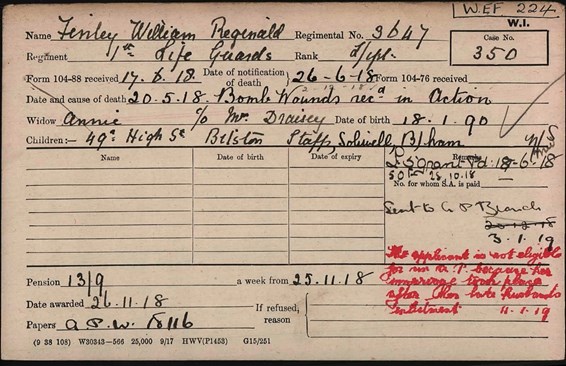 W.EF 224
W.I.
Name Tenley William Reginald Regimental No. 3647
Case No. 350
Regiment 1st Life Guards Rank L/Cpl.
Form 104-88 received 17.6.18 Date of notification of death 26-6-18 Form 104-76 received
Date and cause of death 20.5.18 Bomb Wounds recd in Action
Widow Annie c/o Mrs Draisey Date of birth 18.1.90
Children:— 49a High St Bilston Staffs, B/ham
Name Date of birth Date of expiry Remarks
Grant Pd. -6-18
28.10.18
No. for whom S.A. is paid
Sent to G P Branch
20-12-18
3.1.19
The applicant is not eligible
for an A.P. because her
marriage took place
after her late husband's
enlistment 11.1.19
Pension 13/9 a week from 25.11.18
Date awarded 26.11.18
Papers A.P.W. If refused, reason
(9 38 108) W30343—566 25,000 9/17 HWV(P1453) G15/251